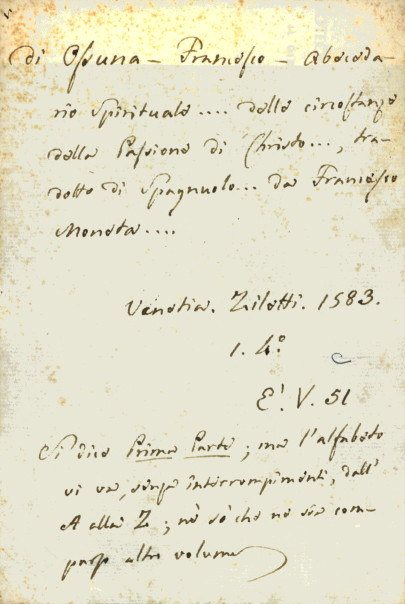 di Ossuna - Francesco - Abeceda-
rio Spirituale.... delle circostanze
della Passione di Christo..., tra-
dotto di Spagnuolo... da Francesco
Moneta....
Venetia. Ziletti. 1583.
1. 4.º
E'. V. 51
Si dice Prima Parte; ma l'alfabeto
vi va, senza interrompimenti, dall'
A alla Z; nè so che ne sia com-
parso altro volume